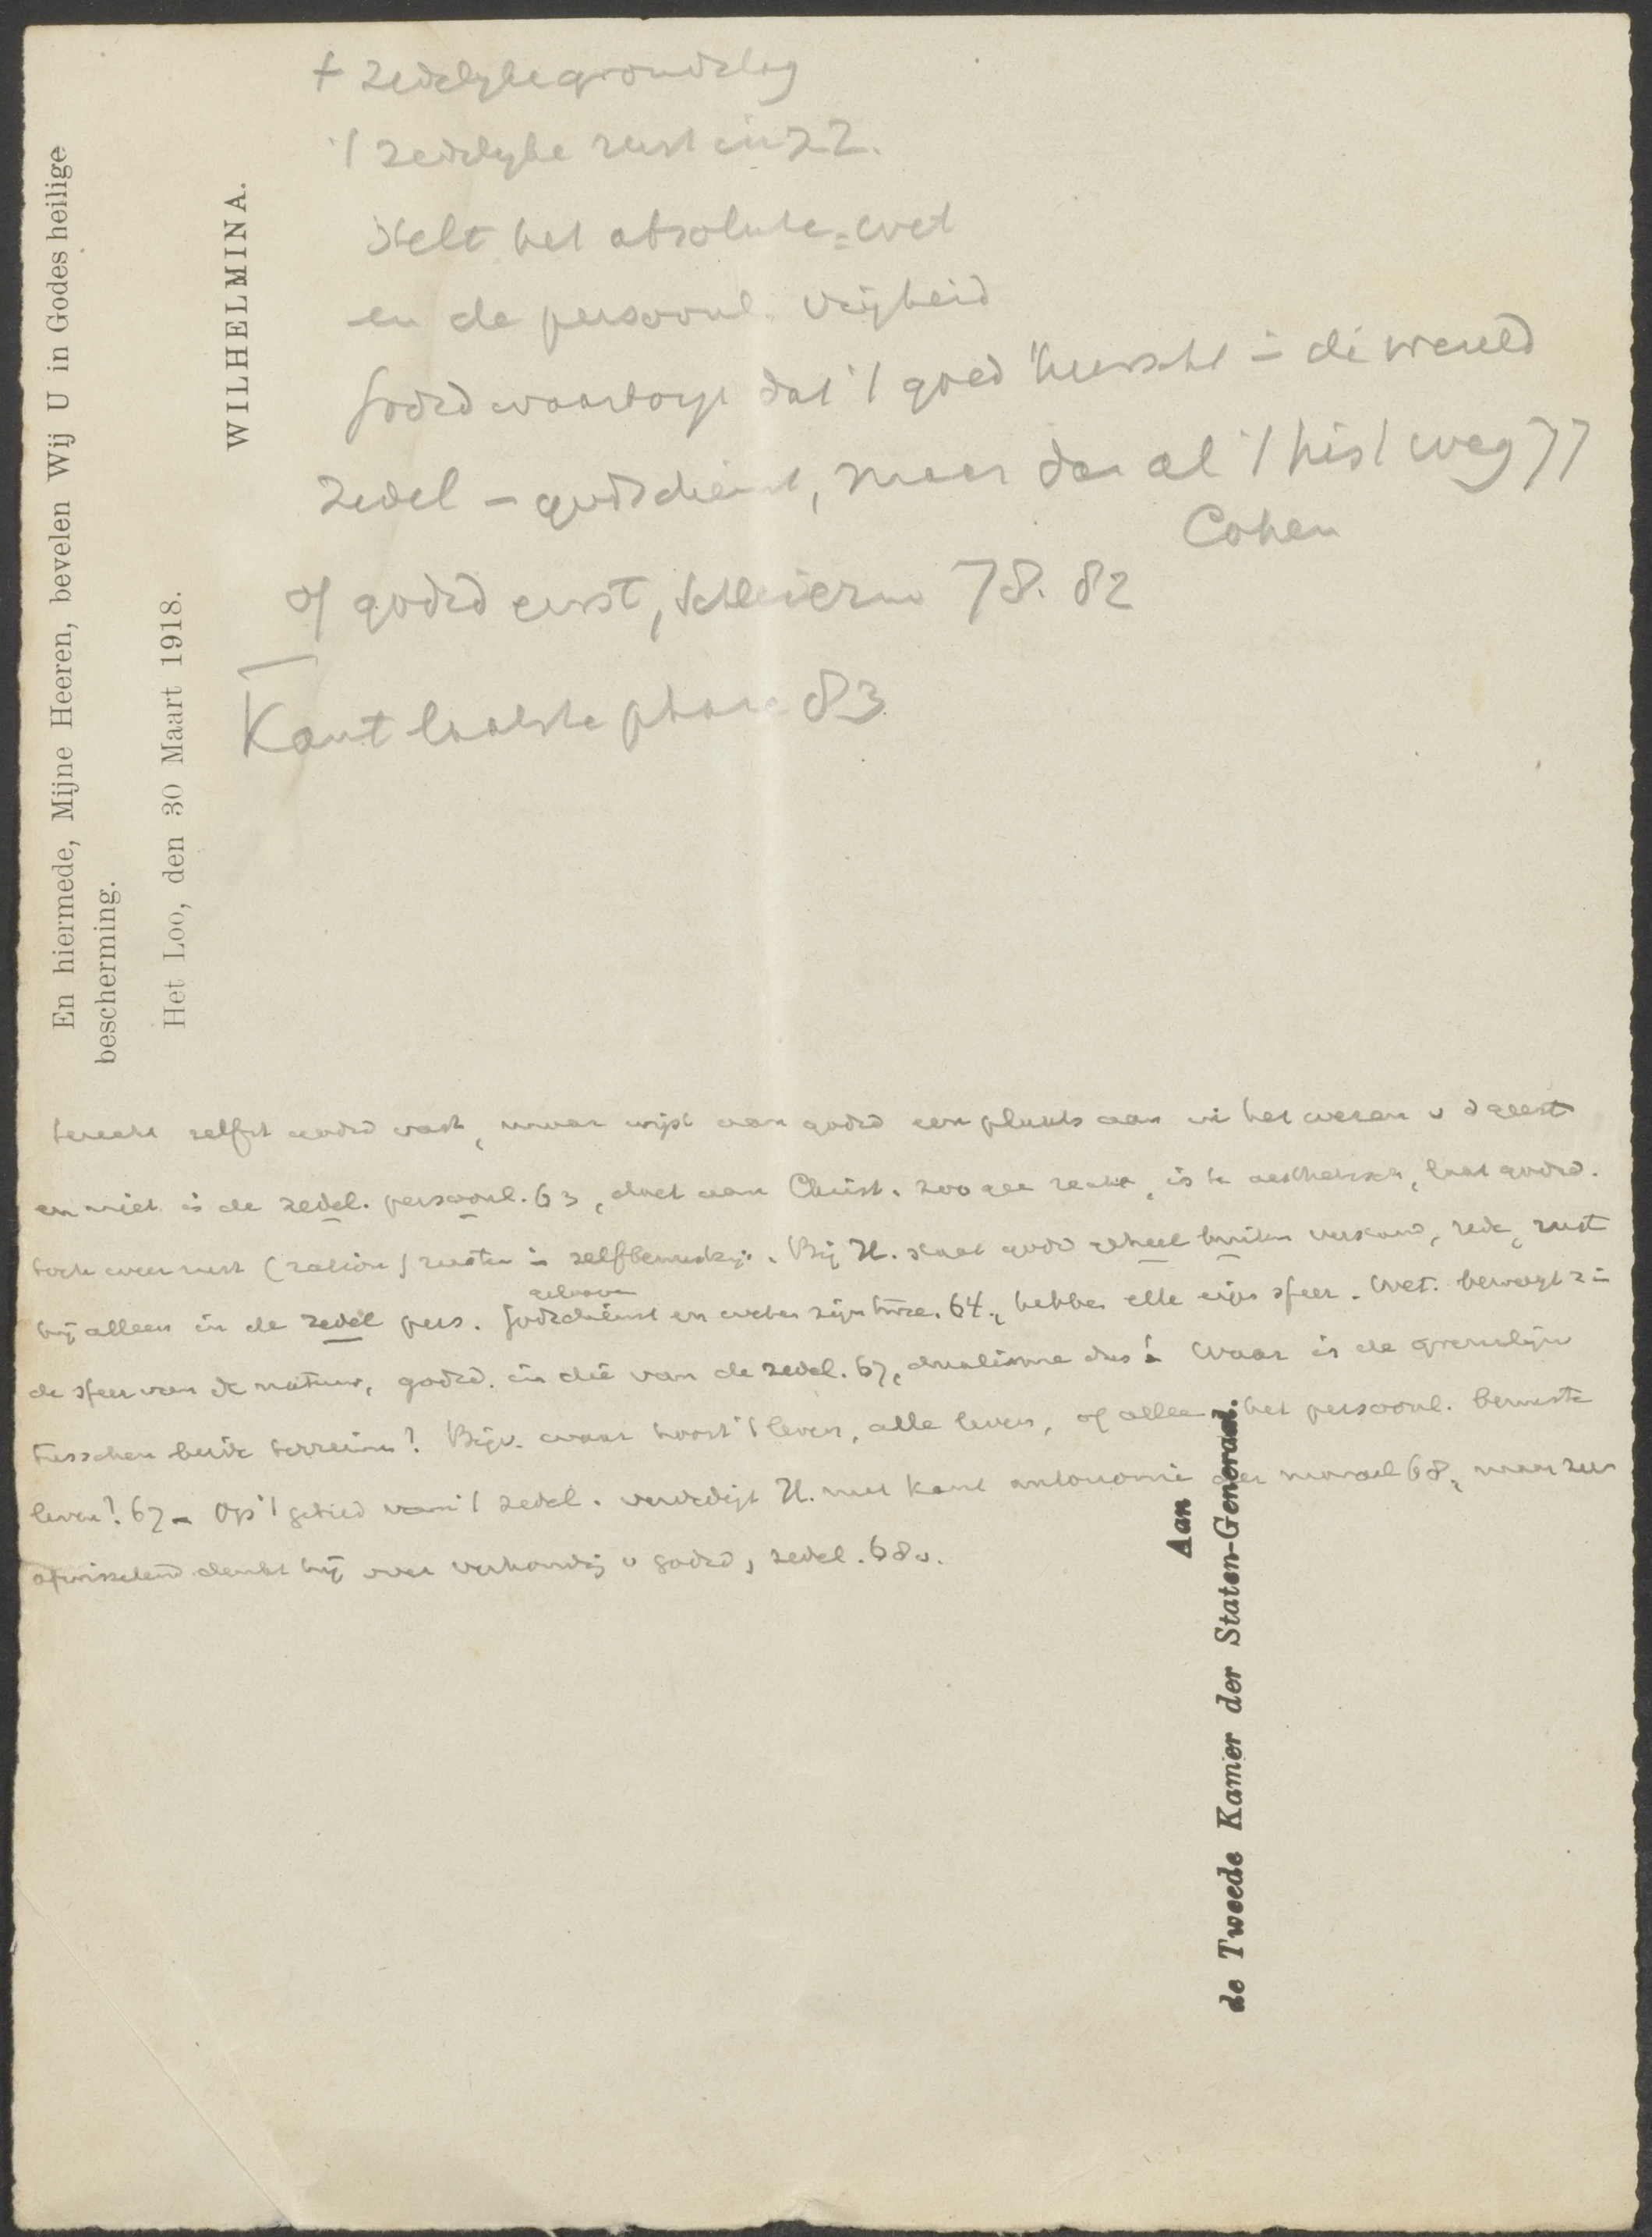 En hiermede, Mijne Heeren, bevelen Wij U in Godes heilige
bescherming.
Het Loo, den 30 Maart 1918.
WILHELMINA.
't zedelyke rust in zz.
Stelt het absolute = wet
en de persoonl. vrijheid
Godsd waarborgt dat 't goed heerscht in de wereld
zedel = godsdienst, maar dan al 't hist weg 77
Cohen
of godsd eerst, Schleierm 78. 82
Kant laatste phase 83
godsd vast, maar wijst aan godsd een plaats aan in het wezen v d geest
en niet in de zedel. persoonl. 63, doet aan Christ. zoo gee recht, is te aesthetisch, laat godsd.
toch weer rust (ration) rusten in zelfbewustzijn. Bij H. staat godsd geheel buiten verstand, rede, rust
geloove
bij alleen in de zedel pers. Godsdienst en weten zijn twee. 64, hebben elk eigen sfeer. Wet. beweegt z in
de sfeer van de natuur, godsd. in die van de zedel. 67, dualisme dus! Waar is de grenslijn
tusschen beide terreinen? Bijv. waar hoort 't leven, alle leven, of alleen het persoonl. bewuste
leven? 67 - Op 't gebied van 't zedel. verdedigt H. met Kant autonomie der moraal 68, maar zeer
afwisselend denkt hij over verhouding v godsd, zedel. 68v.
Aan
de Tweede Kamer der Staten-Generaal.